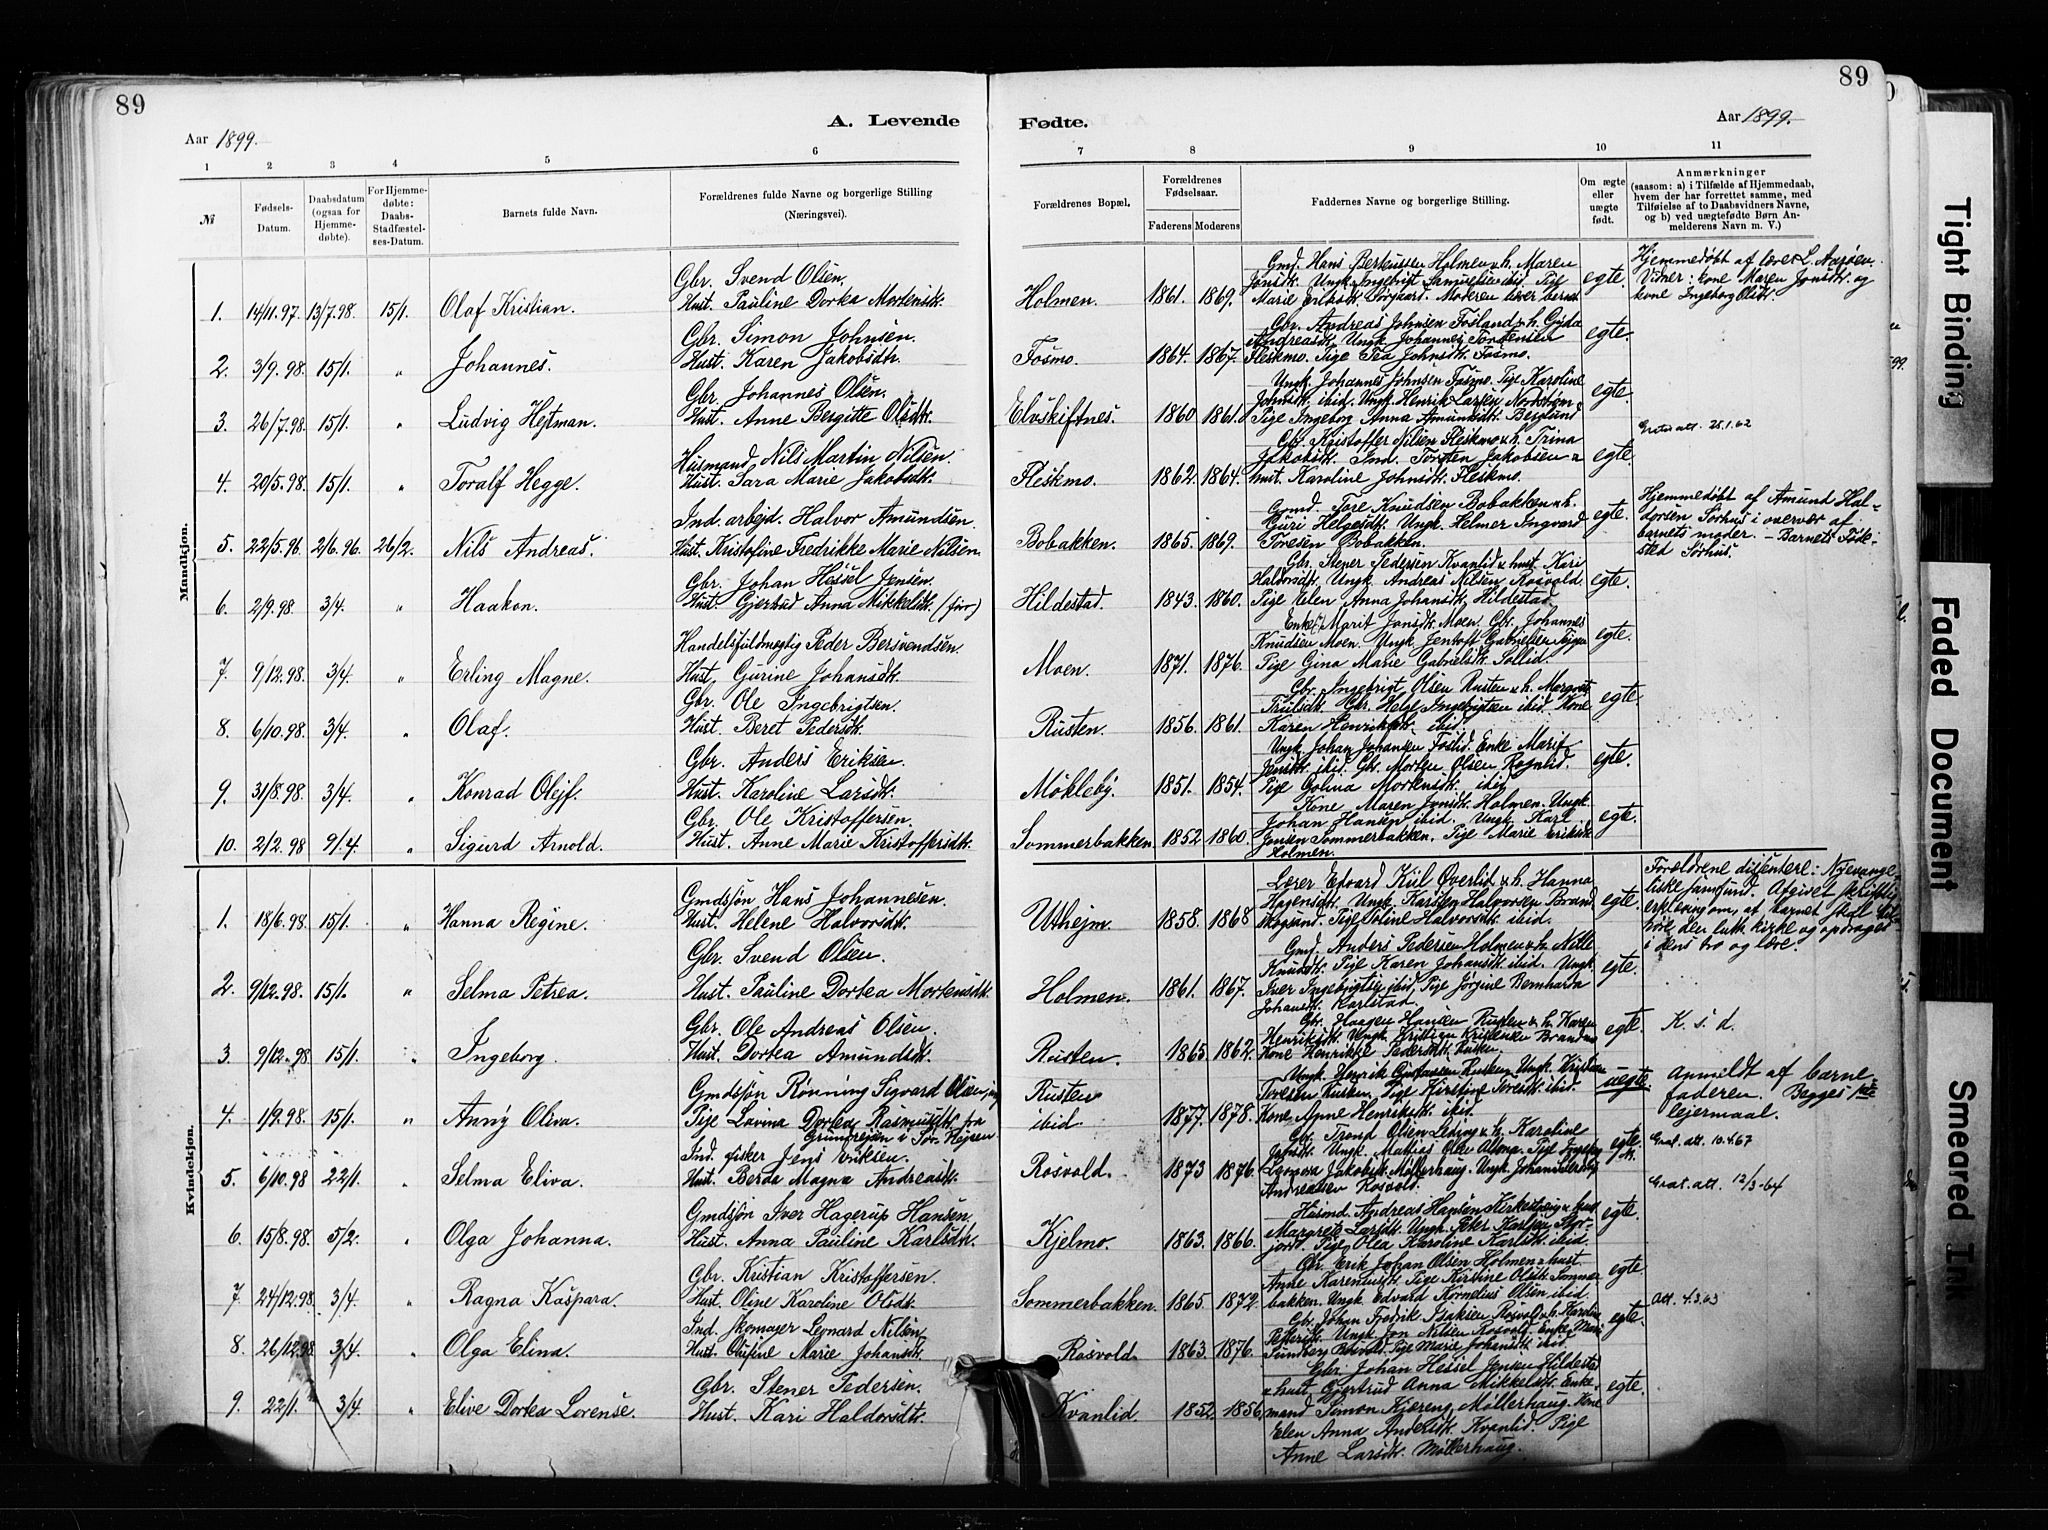 89
89
A. Levende
Fødte.
Aar 1899.
Aar 1899.
1 2 3 4 5 6 7 8 9 10 11
№
Fødsels-Datum.
Daabsdatum (ogsaa for Hjemmedøbte).
For Hjemmedøbte: Daabs-Stadfæstelses-Datum.
Barnets fulde Navn.
Forældrenes fulde Navne og borgerlige Stilling (Næringsvei).
Forældrenes Bopæl.
Forældrenes Fødselsaar.
Faderens Moderens
Faddernes Navne og borgerlige Stilling.
Om ægte eller uægte født.
Anmærkninger
(saasom: a) i Tilfælde af Hjemmedaab, hvem der har forrettet samme, med Tilføielse af to Daabsvidners Navne, og b) ved uægtefødte Børn Anmelderens Navn m. V.)
Mandkjøn.
1. 14/11.97. 13/7.98. 15/1. Olaf Kristian.
Gbr. Svend Olsen,
Hust. Pauline Dortea Mortensdt.
Holmen. 1861. 1869.
Gmd. Hans Berteussen Holmen & h. Maren
Jonsdt. Ungk. Ingebrigt Samuelsen ibid. Pige
Marie Eriksdt. Sørgaard. Moderen
egte.
Hjemmedøbt af lærer L. Aasøen.
Vidner: kone Maren Jonsdt. og
kone Ingeborg Olsdt.
2. 3/9.98. 15/1. " Johannes.
Gbr. Simon Johnsen.
Hust. Karen Jakobsdt.
Fosmo. 1864. 1867.
Gbr. Andreas Johnsen Fosland & h. Gjida
Andreasdt. Ungk. Johannes Torstensen
Fleskmo. Pige Pea Johnsdt. Fosmo.
egte.
3. 26/7.98. 15/1. " Ludvig Hejtman.
Gbr. Johannes Olsen.
Hust. Anne Bergitte Olsdt.
Elvskiftnes. 1860 1861.
Ungk. Johannes Johnsen Fosmo. Pige Karoline
Johnsdt. ibid. Ungk. Henrik Larsen
Pige Ingeborg Anna Amundsdt. Berglund
egte.
att. 25.1.62
4. 20/5.98. 15/1. " Toralf Hegge.
Husmand Nils Martin Nilsen.
Hust. Sara Marie Jakobsdt.
Fleskmo. 1862. 1864.
Gbr. Kristoffer Nilsen Fleskmo & h. Trina
Jakobsdt. Ind. Torsten Jakobsen &
hust. Karoline Johnsdt. Fleskmo.
egte.
5. 22/5.96. 2/6.96. 26/2. Nils Andreas.
Ind. arbejd. Halvor Amundsen.
Hust. Kristofine Fredrikke Marie Nilsen.
Bobakken. 1865. 1869.
Gmd. Tore Knudsen Bobakken & h.
Guri Helgesdt. Ungk. Helmer Ingvard
Toresen Bobakken.
egte.
Hjemmedøbt af Amund Hal-
dorsen Sørhus i overvær af
barnets moder. – Barnets Føde-
sted Sørhus.
6. 2/9.98 3/4. " Haakon.
Gbr. Johan Hessel Jensen.
Hust. Gjertrud Anna Mikkelsdt.
Hildestad. 1843. 1860.
Gbr. Stener Pedersen Kvanlid & hust. Kari
Haldorsdt. Ungk. Andreas Nilsen Rosvold.
Pige Elen Anna Johansdt. Hildestad.
egte.
7. 9/12.98. 3/4. " Erling Magne.
Handelsfuldmegtig Peder Bersvendsen.
Hust. Gurine Johansdt.
Moen. 1871. 1876.
Enke Marit Jonsdt. Moen. Gbr. Johannes
Knudsen Moen. Ungk. Jentoft Gabrielsen
Pige Gina Marie Gabrielsdt. Sollid.
egte.
8. 6/10.98. 3/4. " Olaf.
Gbr. Ole Ingebrigtsen.
Hust. Beret Pedersdt.
Rusten. 1856. 1861.
Gbr. Ingebrigt Olsen Rusten & h. Margret
Trulsdt. Gbr. Helge Ingebrigtsen ibid. Kone
Karen Henriksdt. ibid.
egte.
9. 31/8.98. 3/4. " Konrad Olejf.
Gbr. Anders Eriksen.
Hust. Karoline Larsdt.
Møkleby. 1851. 1854.
Ungk. Johan Johansen Foslid. Enke Marit
Jensdt. ibid. Gbr. Morten Olsen Rognlid.
Pige Golina Mortensdt. ibid.
egte.
10. 2/2.98 9/4. " Sigurd Arnold.
Gbr. Ole Kristoffersen.
Hust. Anne Marie Kristoffersdt.
Sommerbakken. 1852 1860.
Kone Maren Jonsdt. Holmen. Ungk.
Johan Hansen ibid. Ungk. Karl
Jonsen Sommerbakken. Pige Marie Eriksdt.
Holmen.
egte.
Kvindekjøn.
1. 18/6.98. 15/1. " Hanna Regine.
Gmdsjøn Hans Johannesen.
Hust. Helene Halvorsdt.
Uthejm. 1858. 1868
Lærer Edvard Kiil Øverlid & h. Hanna
Hagensdt. Ungk. Karsten Halvorsen Brand
skogsund. Pige Oline Halvorsdt. ibid.
egte.
Foreldrene disentere: Nyevange-
liske samfund. Afgivet skriftlig
erklering om, at barnet skal til-
høre den luth. kirke og opdrages
i dens tro og lære.
2. 9/12.98. 15/1. " Selma Petrea.
Gbr. Svend Olsen.
Hust. Pauline Dortea Mortensdt.
Holmen. 1861. 1867.
Gmd. Anders Pedersen Holmen & h. Nille
Knudsdt. Pige Karen Johansdt. ibid. Ungk.
Iver Ingebrigtsen ibid. Pige Jørgine Bernharda
Johansdt. Karlstad.
egte.
3. 9/12.98 15/1. " Ingeborg.
Gbr. Ole Andreas Olsen.
Hust. Dortea Amundsdt.
Rusten. 1865. 1862.
Gbr. Haagen Hansen Rusten & h. Karen
Henriksdt. Ungk. Kristian Kristensen
Kone Henrikke Pedersdt. Rusten.
egte.
K. s. d.
4. 1/9.98. 15/1. " Anny Oliva.
Gmdsjøn Rønning Sigvard Olsen
Pige Lovina Dortea Rasmusdt. fra
Rusten
ibid 1877. 1878.
Ungk. Henrik Gustavsen Rusten. Ungk. Kristian
Toresen Rusten. Pige Kirstine Toresdt. ibid.
Kone Anne Henriksdt. ibid.
uegte.
Anmeldt af barne-
faderen. Begges 1ste
lejermaal.
5. 6/10.98 22/1. " Selma Eliva.
Ind. fisker Jens Eriksen.
Hust. Berda Magna Andreasdt.
Rosvold. 1873 1876.
Gbr. Trond Olsen & h. Karoline
Jonsdt. Ungk. Mathias Olsen Pige Ingeborg
Leonora Jakobsdt. Møllerhaug. Ungk.
Andreassen Rosvold.
egte.
Gnat. att. 10.4.67
6. 15/8.98. 5/2. " Olga Johanna.
Gmdsjøn Iver Hagerup Hansen
Hust. Anna Pauline Karlsdt.
Kjelmo. 1863. 1866.
Husmd. Andreas Hansen & hust
Margrete Larsdt. Ungk. Peter Karlsen
Pige Olea Karoline Karlsdt. ibid
egte.
Gnat. att. 12/3-64
7. 24/12.98. 3/4. " Ragna Kaspara.
Gbr. Kristian Kristoffersen.
Hust. Oline Karoline Olsdt.
Sommerbakken. 1865. 1872.
Gbr. Erik Johan Olsen Holmen & hust.
Anne Pige Kirstine Olsdt. Sommer
bakken. Ungk. Edvard Kornelius Olsen ibid.
egte.
att. 4.3.63
8. 26/12.98 3/4. " Olga Elina.
Ind. skomager Leonard Nilsen
Hust. Marie Johansdt.
Rosvold. 1863. 1876.
Gbr. Johan Fredrik Isaksen Rosvold & h. Karolin
Ungk. Jon Nilsen Rosvold. Enke
Pige Marie Johansdt. ibid.
egte.
9. 22/1. 3/4. " Elive Dortea Lorense.
Gbr. Stener Pedersen.
Hust. Kari Haldorsdt.
Kvanlid. 1852. 1856.
Gbr. Johan Hessel Jensen Hildestad
& hust. Gjertrud Anna Mikkelsdt. Enke-
mand Simon Kjæreng Møllerhaug. Kone
Elen Anna Andersdt. Kvanlid. Pige
Anne Larsdt. Møllerhaug.
egte.
Tight Binding
Faded Document
Smeared Ink